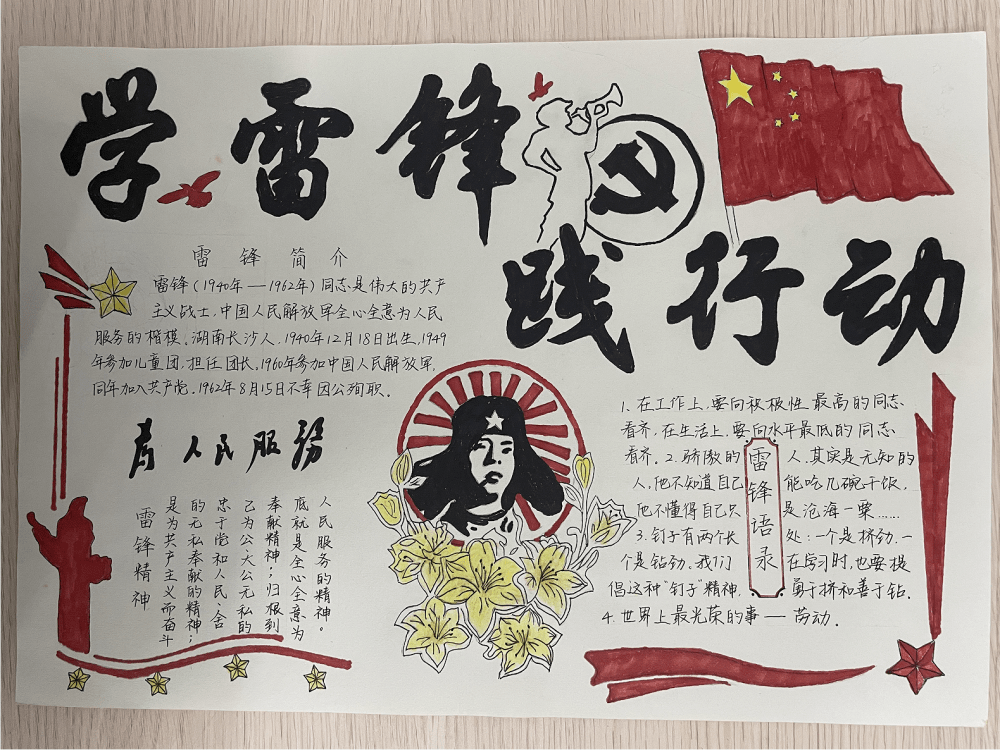 学雷锋
践行动
雷锋简介
雷锋(1940年—1962年)同志是伟大的共产
主义战士,中国人民解放军全心全意为人民
服务的楷模,湖南长沙人,1940年12月18日出生,1949
年参加儿童团,担任团长,1960年参加中国人民解放军,
同年加入共产党。1962年8月15日不幸因公殉职。
为人民服务
雷锋精神
是为共产主义而奋斗
的无私奉献的精神;
忠于党和人民、舍
己为公、大公无私的
奉献精神;归根到
底就是全心全意为
人民服务的精神。
雷锋语录
1、在工作上,要向积极性最高的同志
看齐,在生活上,要向水平最低的同志
看齐。2.骄傲的人,其实是无知的
人,他不知道自己能吃几碗干饭,
他不懂得自己只是沧海一粟……
3.钉子有两个长处:一个是挤劲,一
个是钻劲。我们在学习时,也要提
倡这种"钉子"精神,勇于挤和善于钻。
4.世界上最光荣的事—劳动。